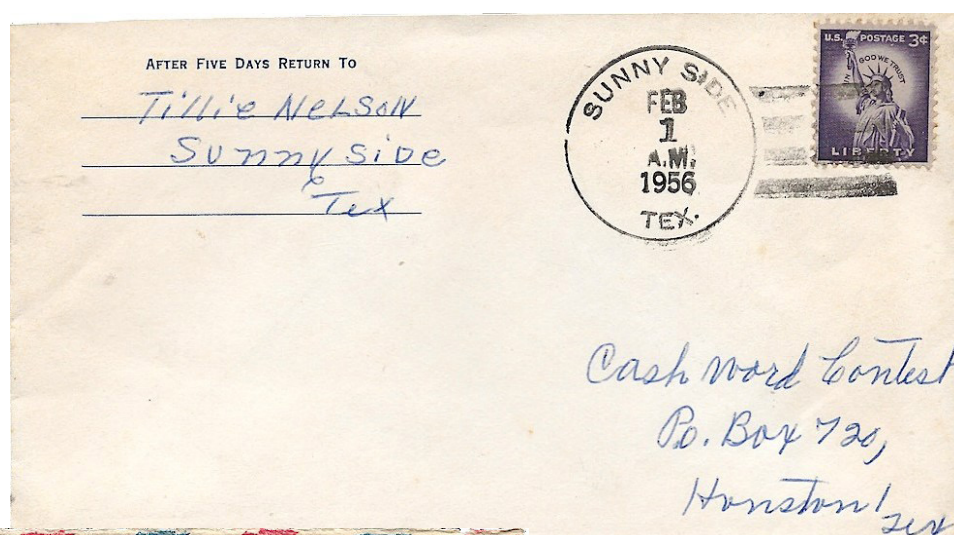 AFTER FIVE DAYS RETURN TO
Tillie Nelson
Sunny Side
Tex
SUNNY SIDE
FEB
1
A.M.
1956
TEX.
U.S. POSTAGE 3¢
IN GOD WE TRUST
LIBERTY
Cash Word Contest
P.O. Box 720,
Houston,
Tex